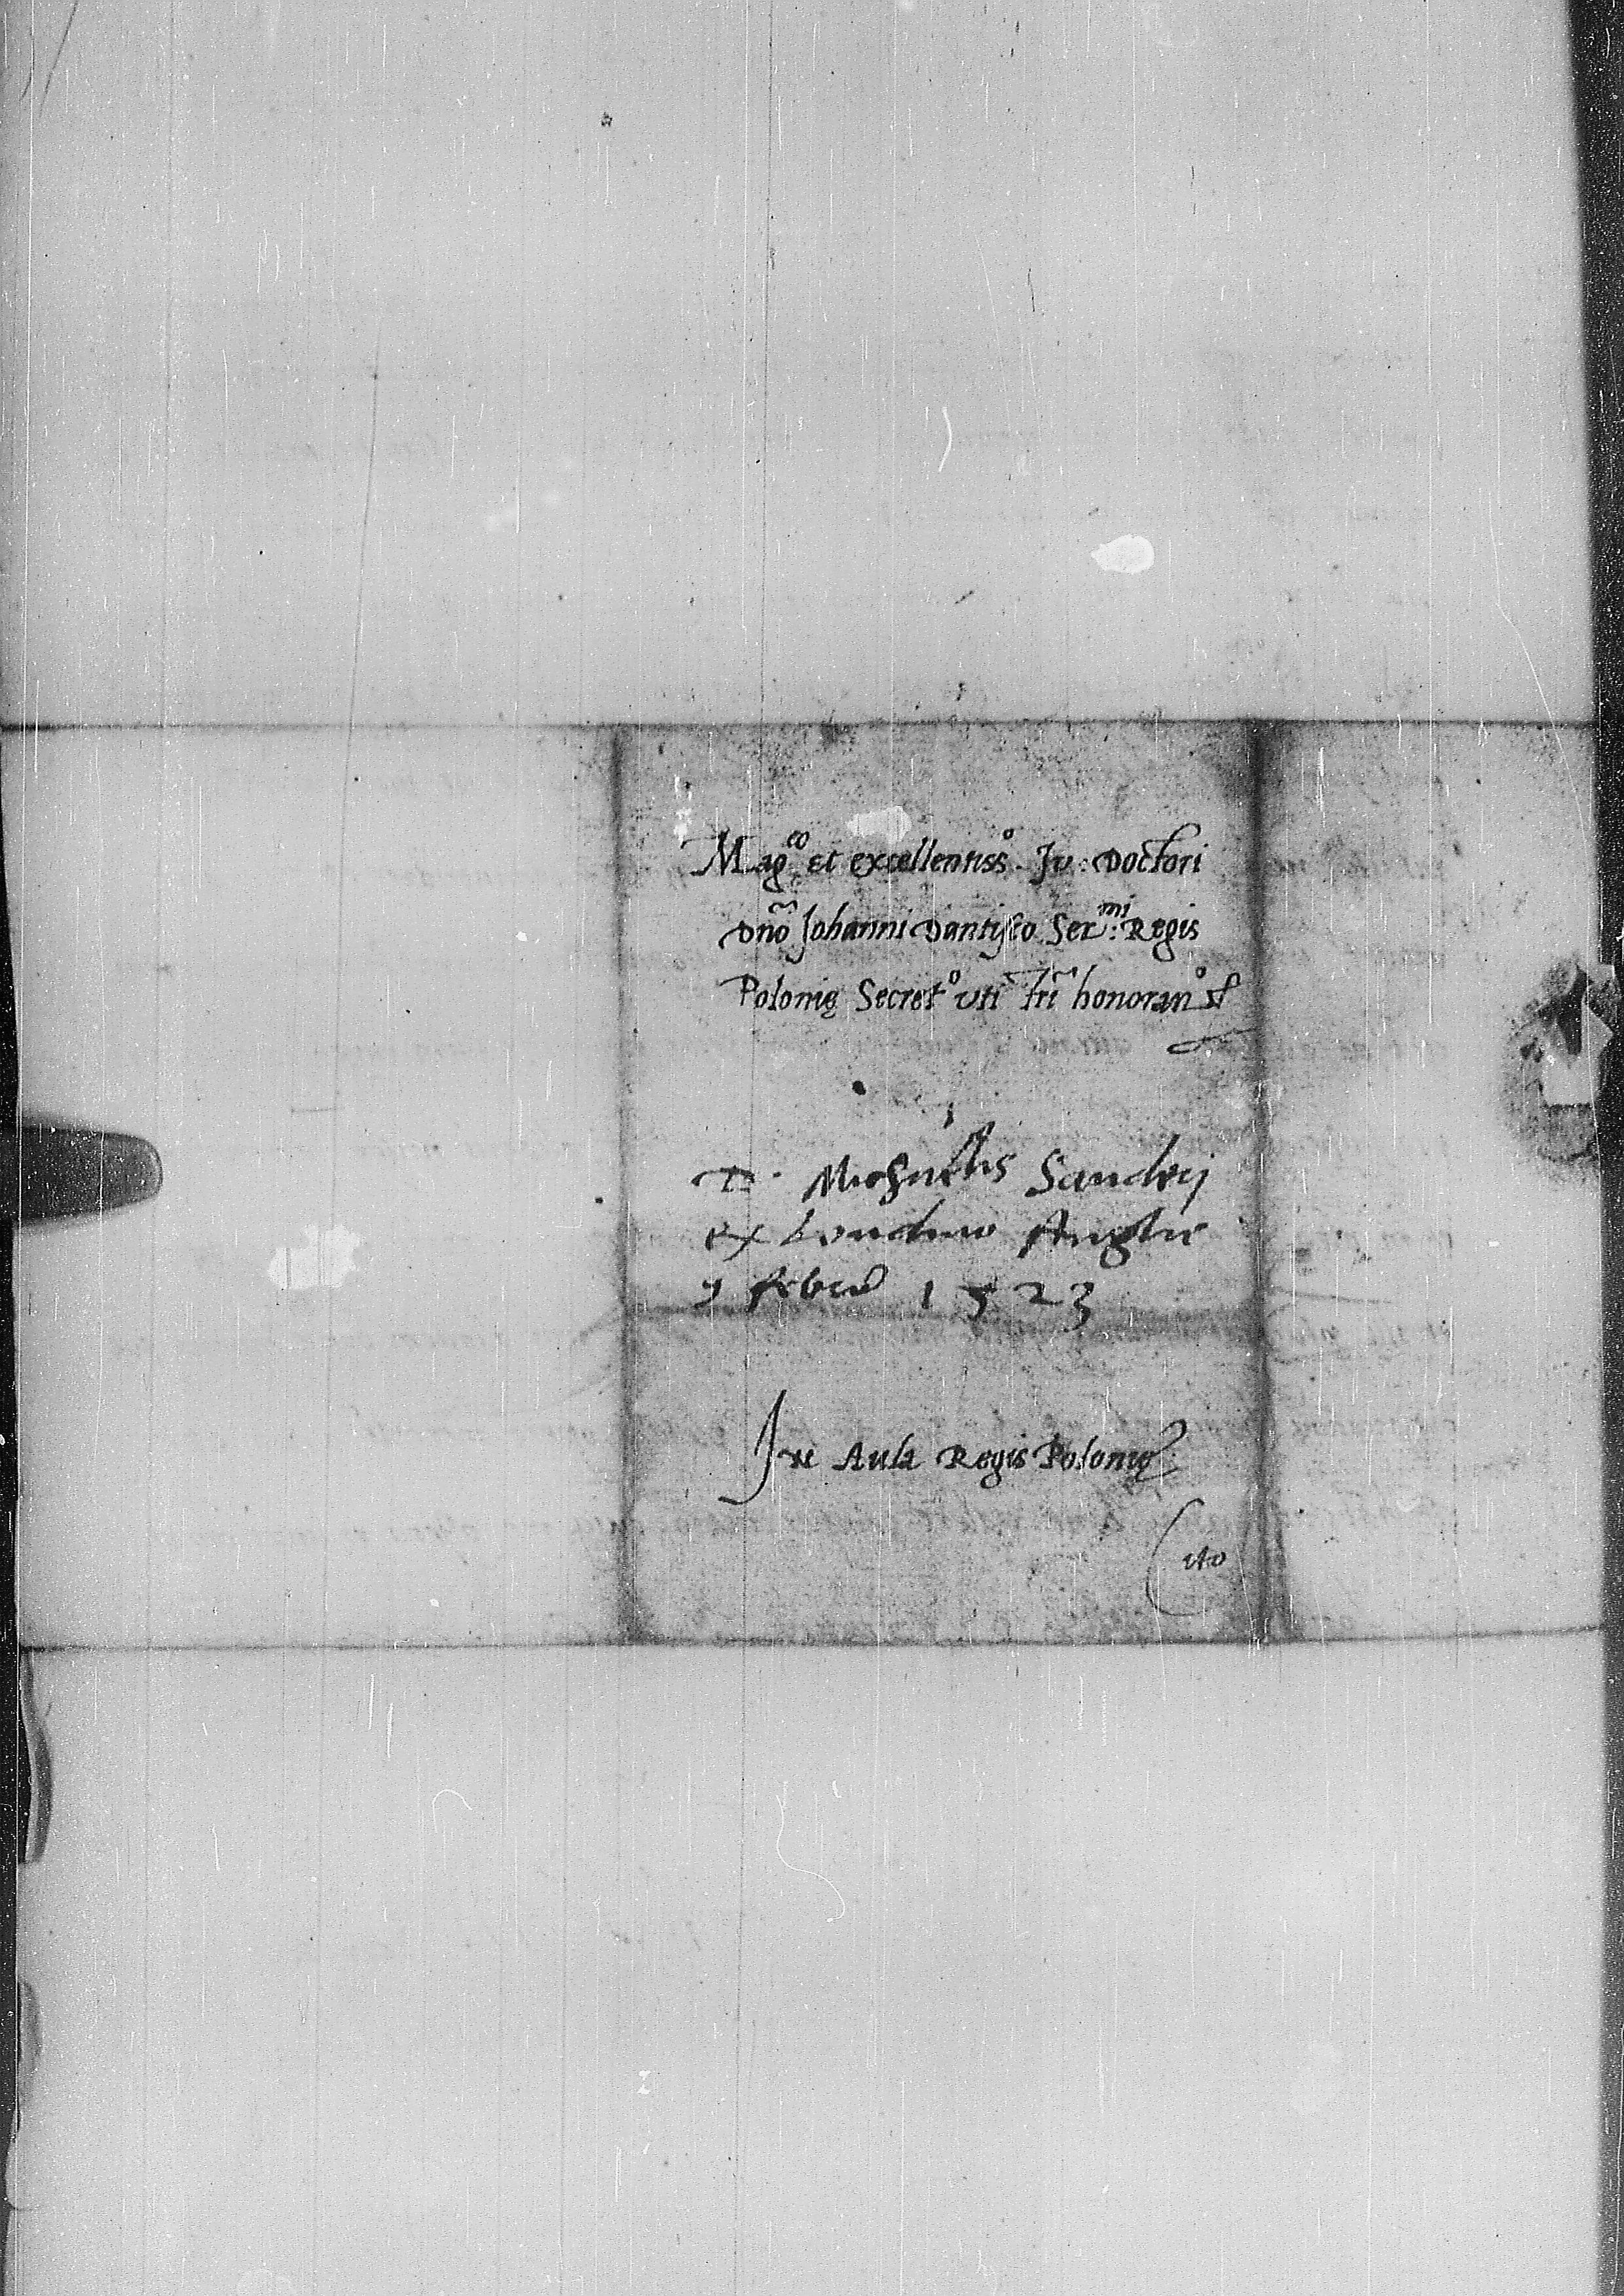 Mag.co et excellentiss.o Ju: Doctori
Dño Johanni Dantisco Ser.mi: Regis
Polonię Secret.o uti fr̃i honoran.o
D. Michaelis Sandrij
ex Londino Anglie
9 febru 1523
In Aula Regis Polonię
Cito